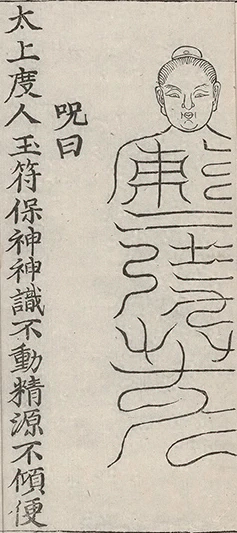 呪曰
太上度人玉符保神神識不動精源不傾便